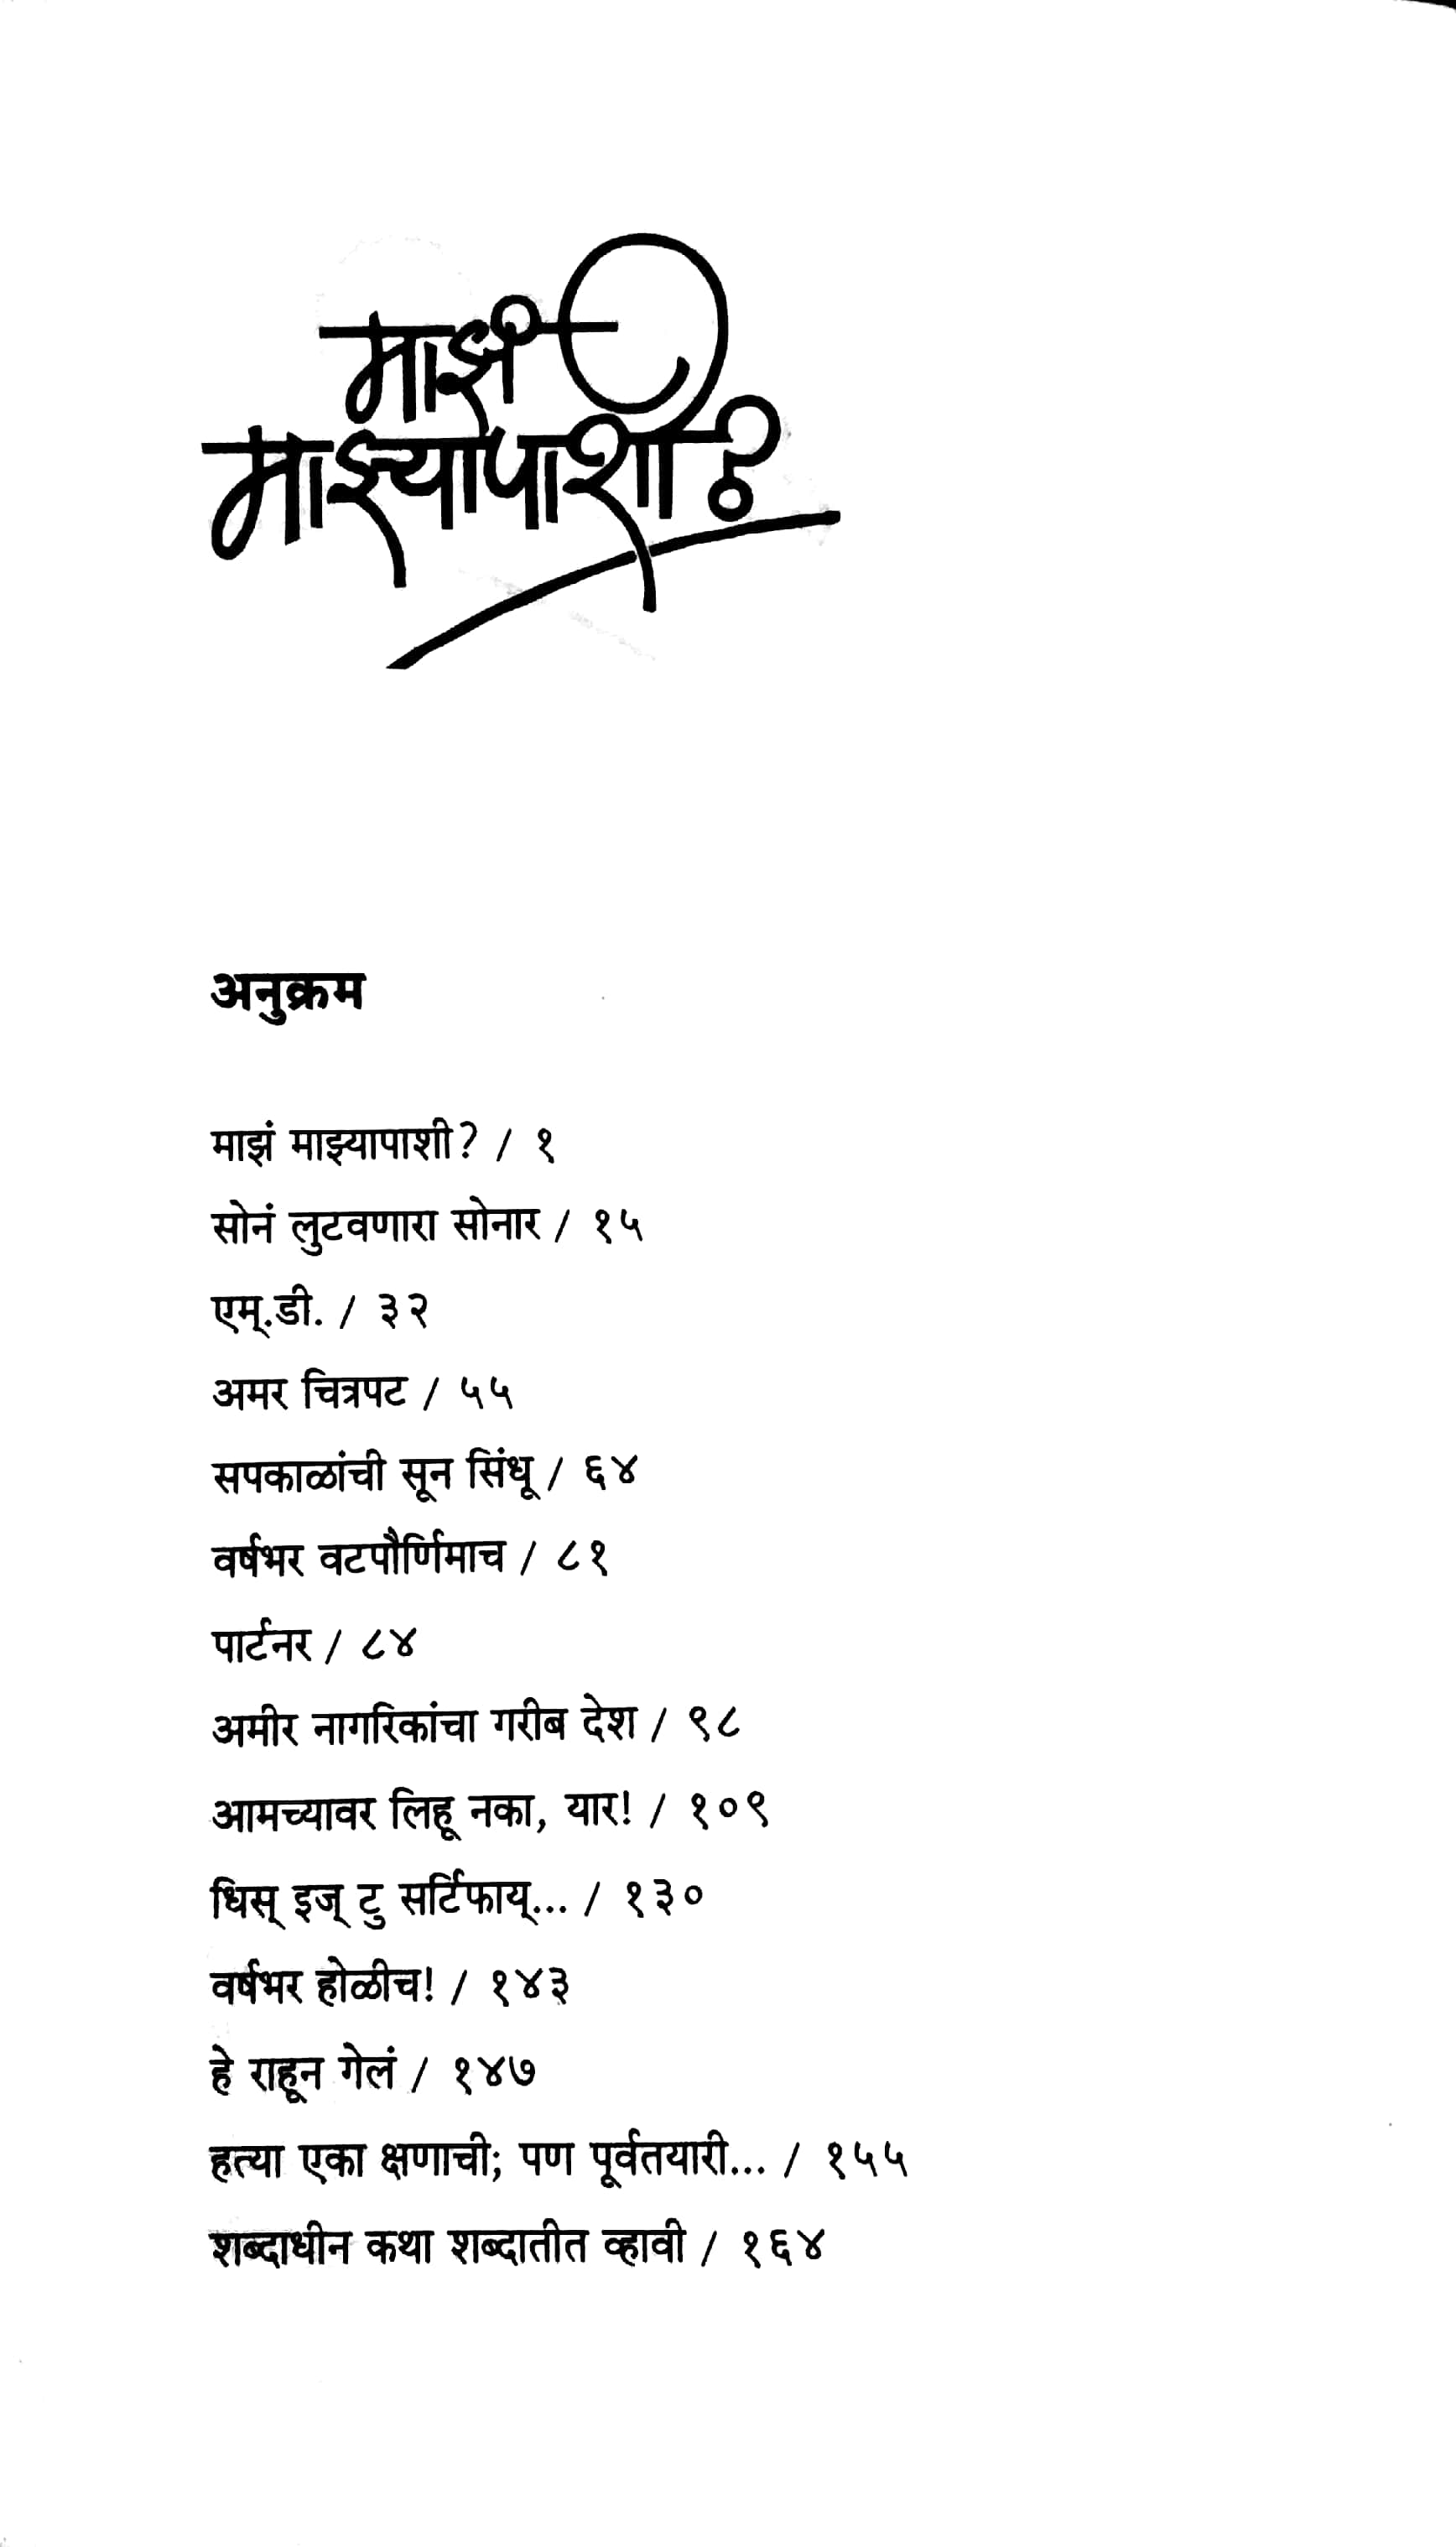 माझं
माझ्यापाशी?
अनुक्रम
माझं माझ्यापाशी? / १
सोनं लुटवणारा सोनार / १५
एम्.डी. / ३२
अमर चित्रपट / ५५
सपकाळांची सून सिंधू / ६४
वर्षभर वटपौर्णिमाच / ८१
पार्टनर / ८४
अमीर नागरिकांचा गरीब देश / ९८
आमच्यावर लिहू नका, यार! / १०९
धिस् इज् टु सर्टिफाय्... / १३०
वर्षभर होळीच! / १४३
हे राहून गेलं / १४७
हत्या एका क्षणाची; पण पूर्वतयारी... / १५५
शब्दाधीन कथा शब्दातीत व्हावी / १६४